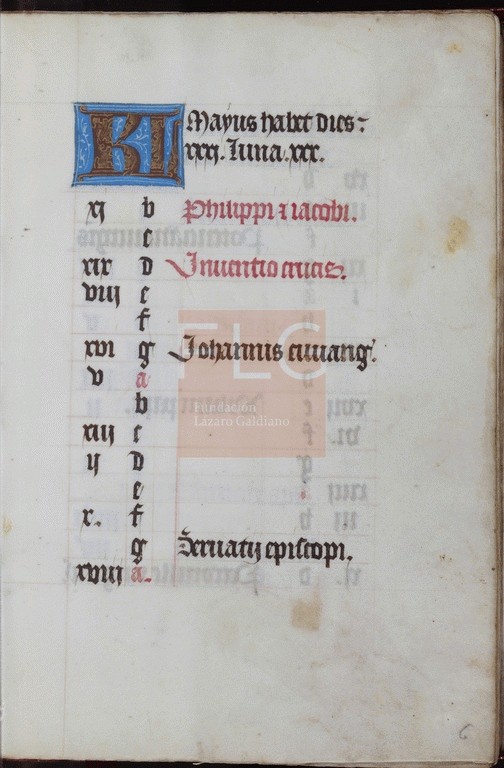 Kl Mayus habet dies:
xxxj. luna .xxx.
xj b Philippi ⁊ iacobi.
c
xix d Inuentio crucis.
viij e
f
xvi g Johannis euuang'.
v a
b
xiij c
ij d
e
x. f
g Seruatij episcopi.
xviij a.
FLG
Fundación
Lázaro Galdiano
6